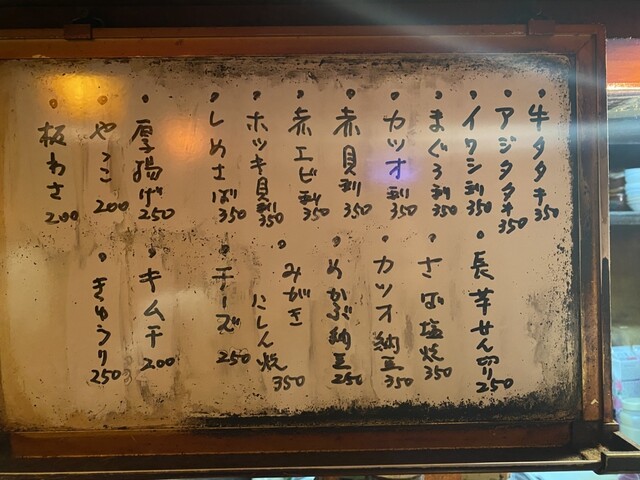 ・牛タタキ350
・アジタタキ350
・イワシ刺350
・まぐろ刺350
・カツオ刺350
・赤貝刺350
・赤エビ刺350
・ホッキ貝刺350
・しめさば350
・厚揚げ250
・やっこ200
・板わさ200
・長芋せん切り250
・さば塩焼350
・カツオ納豆350
・めかぶ納豆250
・みがき
にしん焼350
・チーズ250
・キムチ200
・きゅうり250